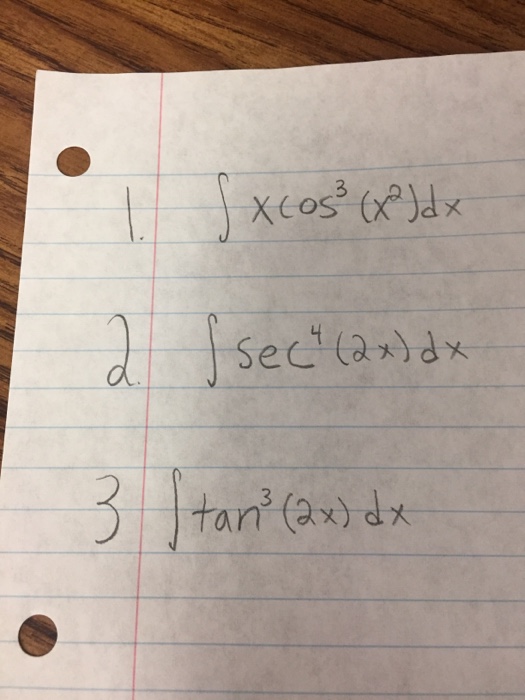 1. ∫ xcos³ (x²)dx
2. ∫ sec⁴ (2x) dx
3 ∫ tan³ (2x) dx